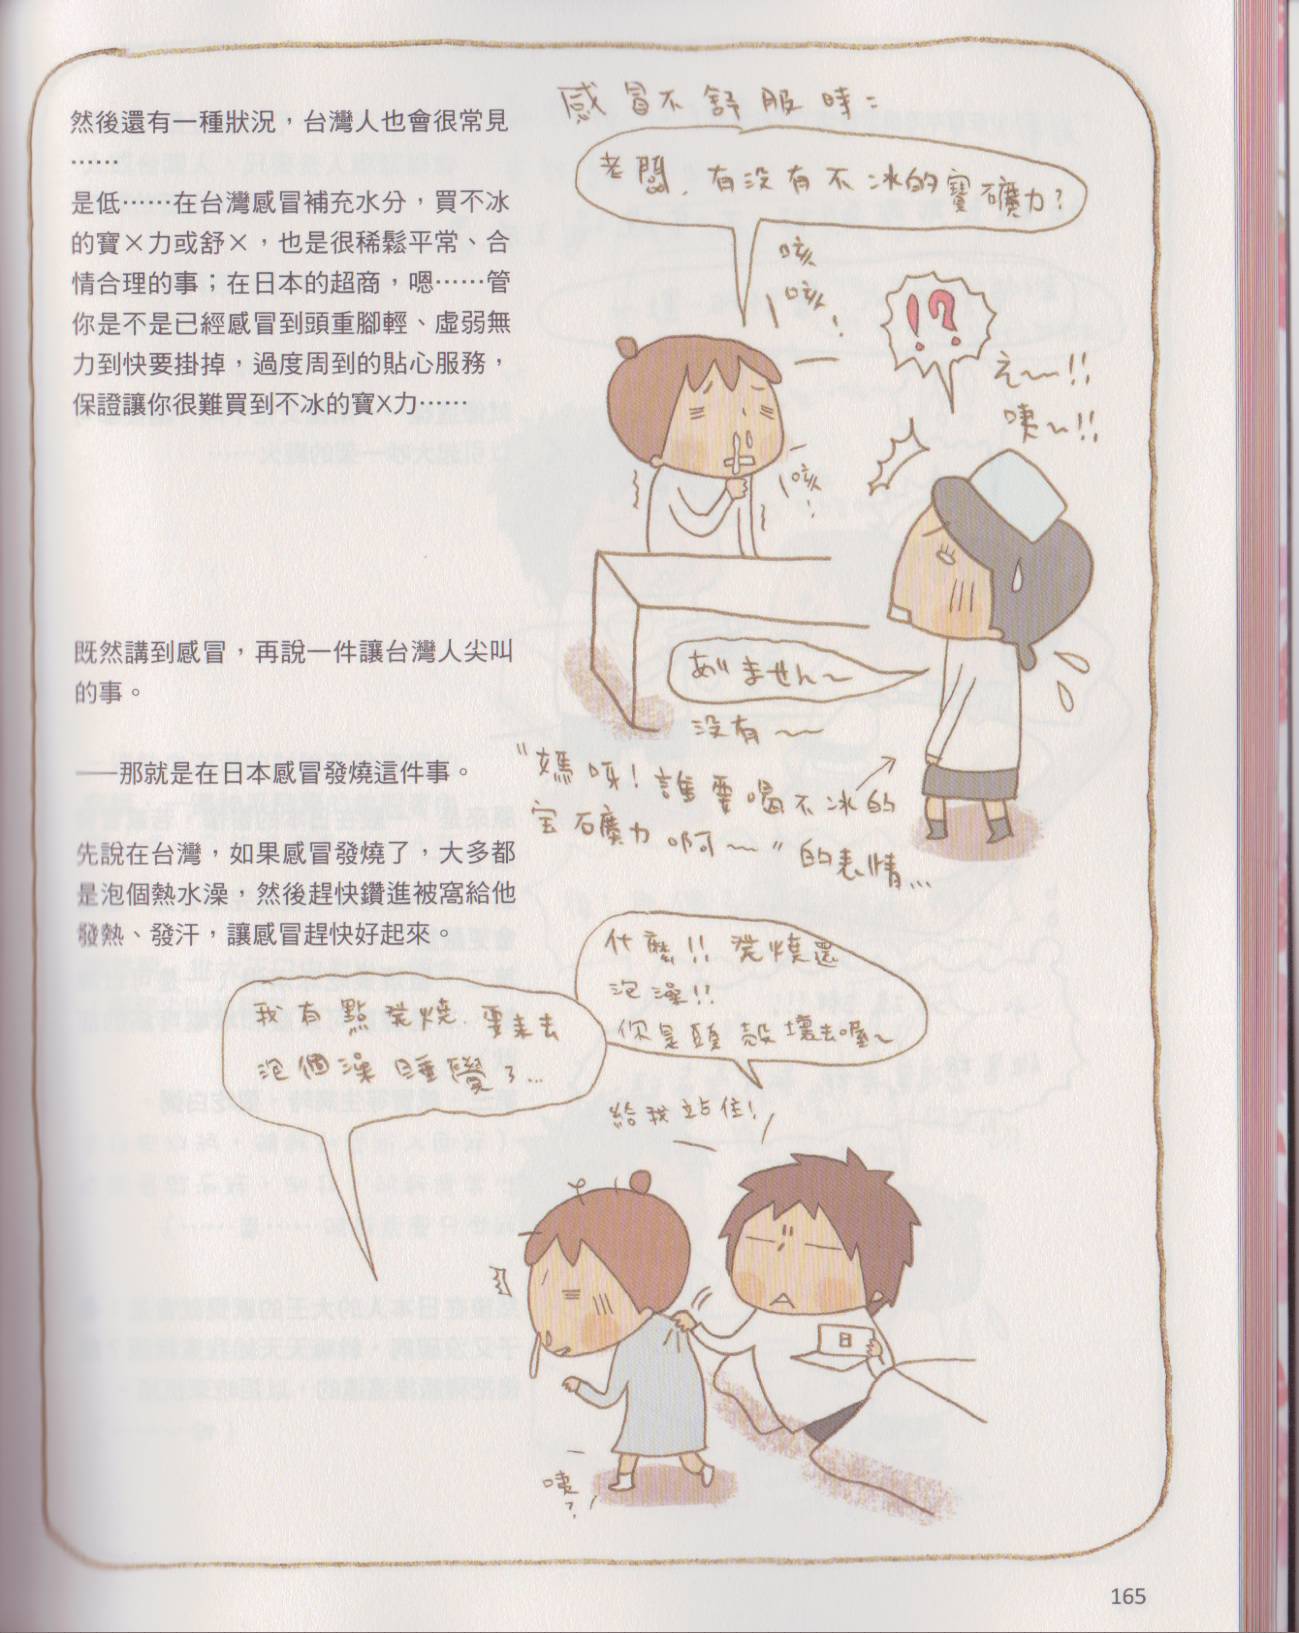 然後還有一種狀況，台灣人也會很常見
……
是低……在台灣感冒補充水分，買不冰
的寶×力或舒×，也是很稀鬆平常、合
情合理的事；在日本的超商，嗯……管
你是不是已經感冒到頭重腳輕、虛弱無
力到快要掛掉，過度周到的貼心服務，
保證讓你很難買到不冰的寶X力……
感冒不舒服時：
老闆，有沒有不冰的寶礦力？
咳
咳!
咳!
!?
え〜!!
咦〜!!
ありません〜
沒有〜
"媽呀！誰要喝不冰的
宝礦力啊〜"的表情...
既然講到感冒，再說一件讓台灣人尖叫
的事。
——那就是在日本感冒發燒這件事。
先說在台灣，如果感冒發燒了，大多都
是泡個熱水澡，然後趕快鑽進被窩給他
發熱、發汗，讓感冒趕快好起來。
我有點発燒，要來去
泡個澡睡覺了...
什麼!! 発燒還
泡澡!!
你是頭殼壞去喔〜
給我站住!
日
咦?
165